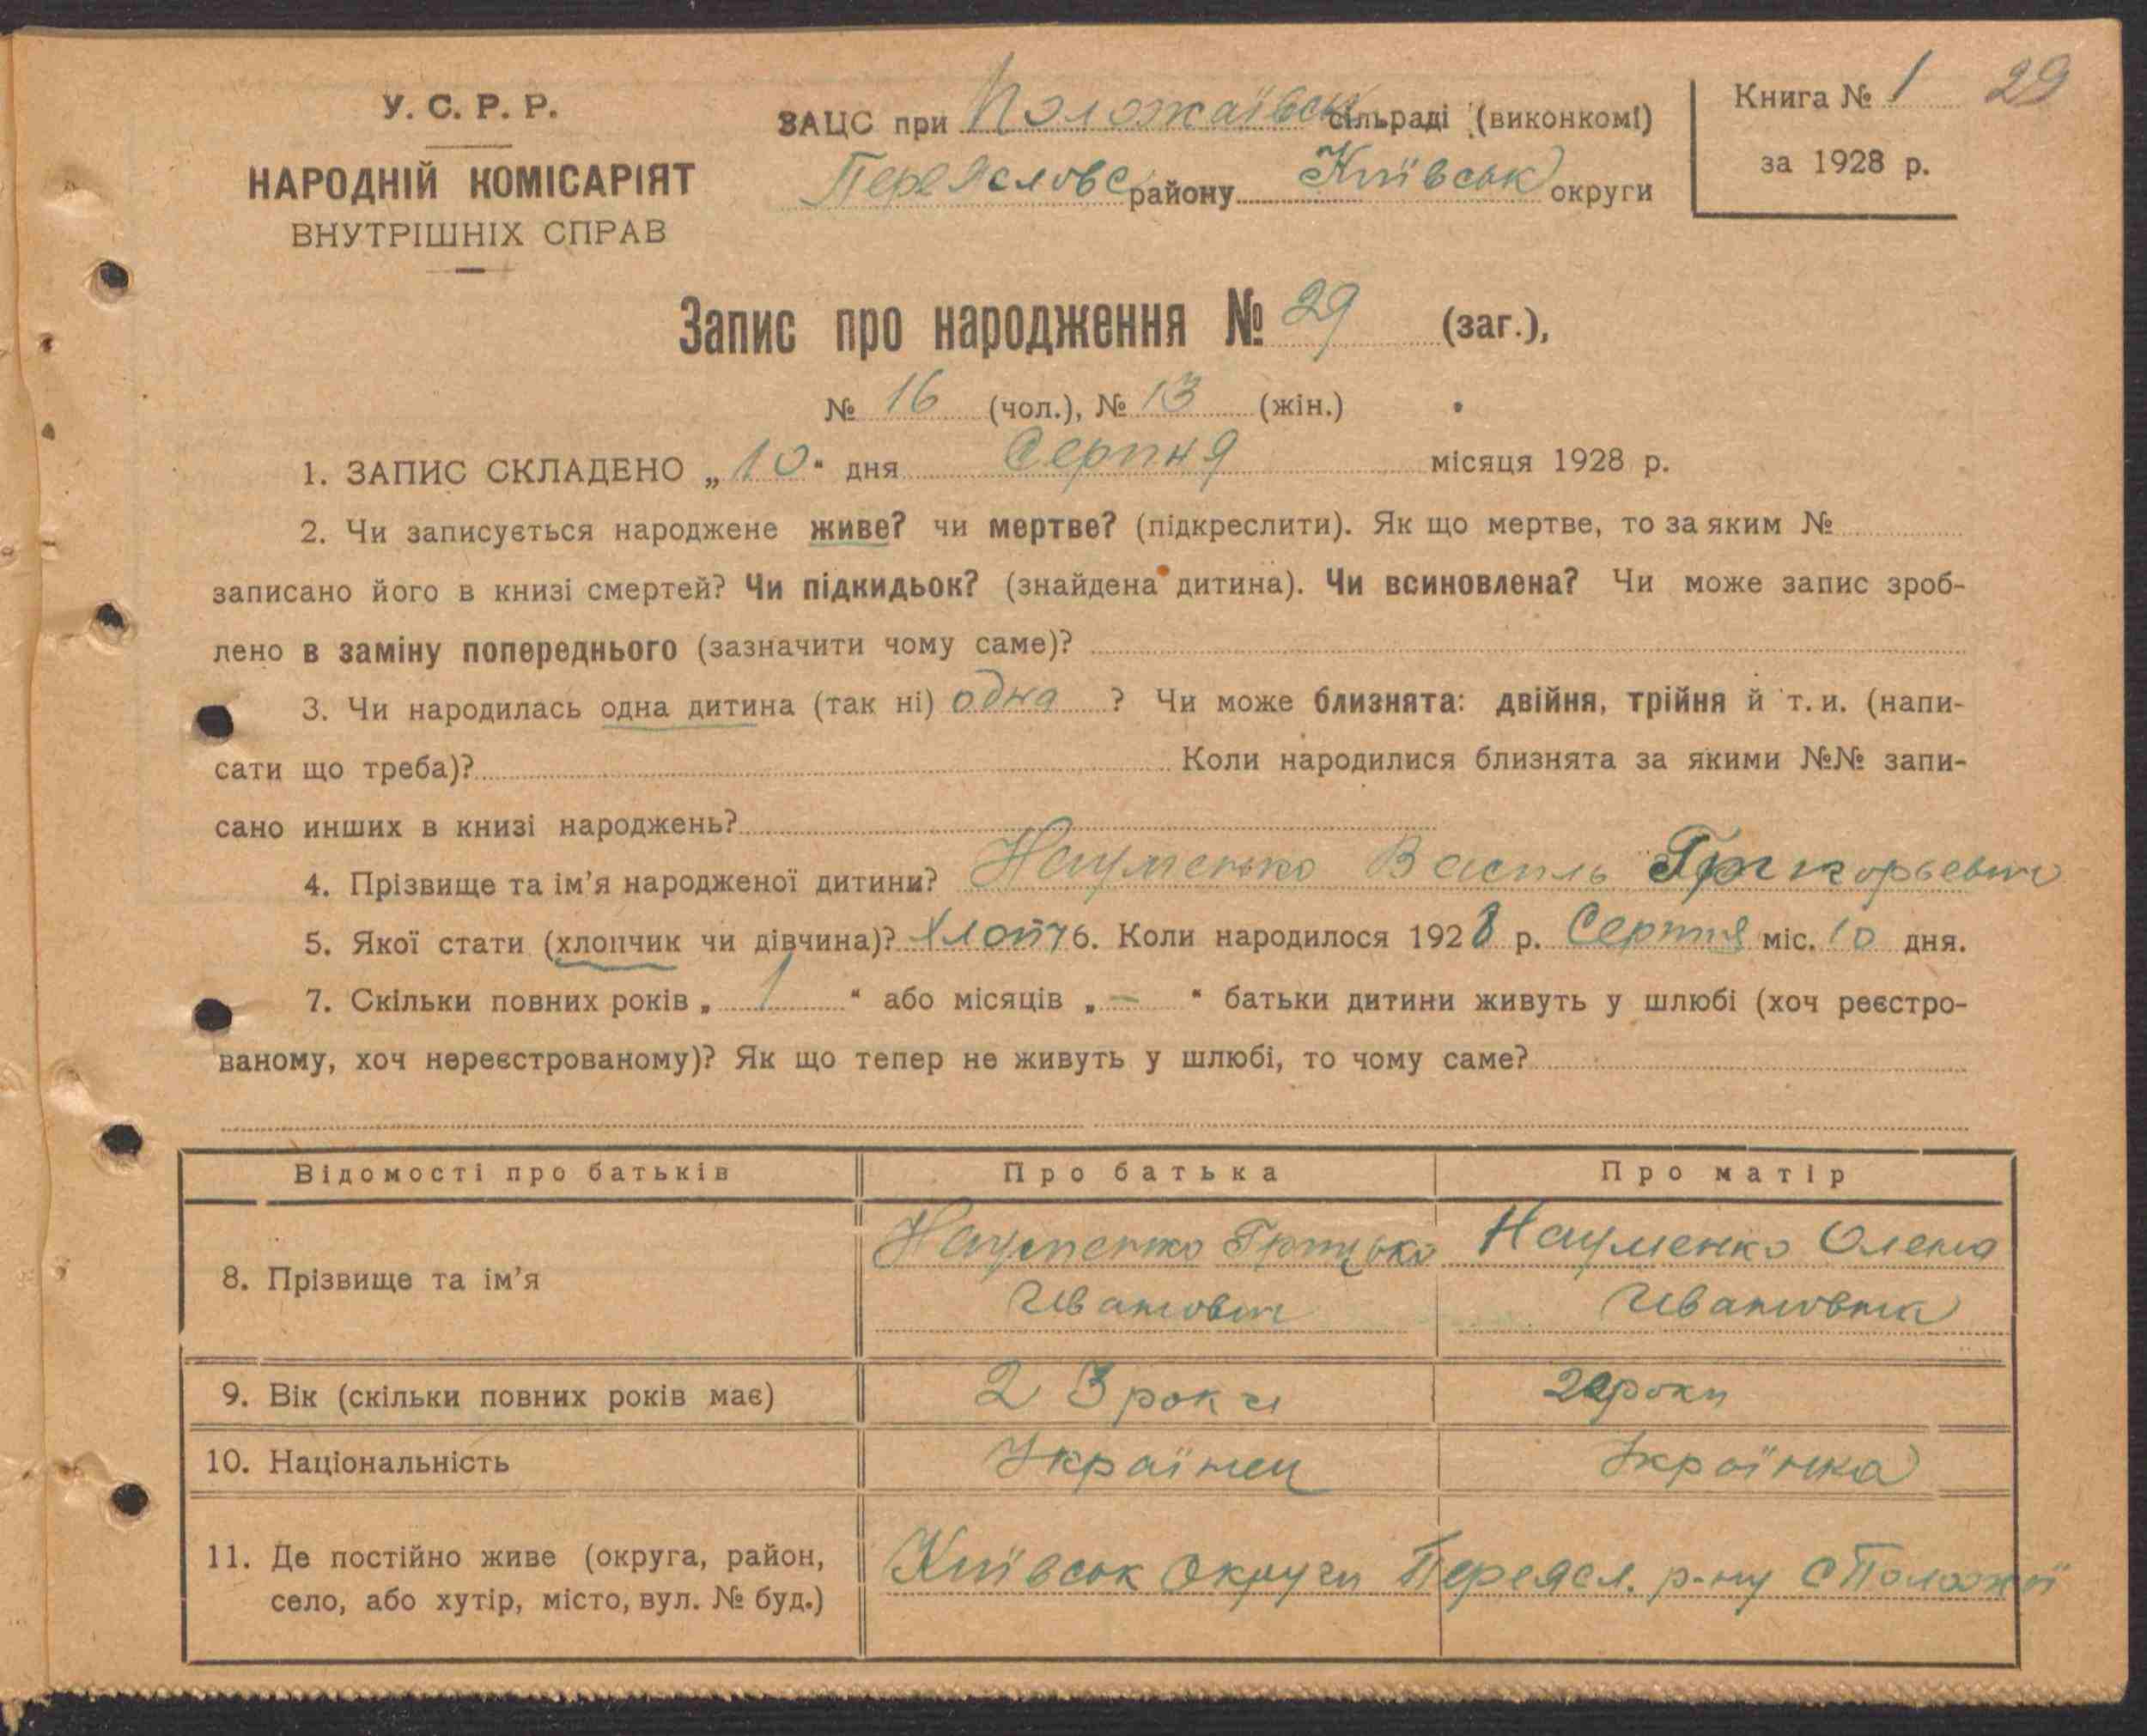 У. С. Р. Р.
НАРОДНІЙ КОМІСАРІЯТ
ВНУТРІШНІХ СПРАВ
ЗАЦС при Положаївськ сільраді (виконкомі)
Переяславс району Київськ округи
Книга № 1 29
за 1928 р.
Запис про народження № 29 (заг.),
№ 16 (чол.), № 13 (жін.)
1. ЗАПИС СКЛАДЕНО „10“ дня Серпня місяця 1928 р.
2. Чи записується народжене живе? чи мертве? (підкреслити). Як що мертве, то за яким №
записано його в книзі смертей? Чи підкидьок? (знайдена дитина). Чи всиновлена? Чи може запис зроб-
лено в заміну попереднього (зазначити чому саме)?
3. Чи народилась одна дитина (так ні) одна ? Чи може близнята: двійня, трійня й т. и. (напи-
сати що треба)? Коли народилися близнята за якими №№ запи-
сано инших в книзі народжень?
4. Прізвище та ім’я народженої дитини? Науменко Василь Григорьевич
5. Якої стати (хлопчик чи дівчина)? Хлопч 6. Коли народилося 1928 р. Серпня міс. 10 дня.
7. Скільки повних років „ 1 “ або місяців „ — “ батьки дитини живуть у шлюбі (хоч реєстро-
ваному, хоч нереєстрованому)? Як що тепер не живуть у шлюбі, то чому саме?
Відомості про батьків Про батька Про матір
8. Прізвище та ім’я Науменко Грицько Науменко Олена
Иванович Ивановна
9. Вік (скільки повних років має) 23 роки роки
10. Національність Українец Українка
11. Де постійно живе (округа, район, Київськ округи Переясл. р-ну с Положаї
село, або хутір, місто, вул. № буд.)